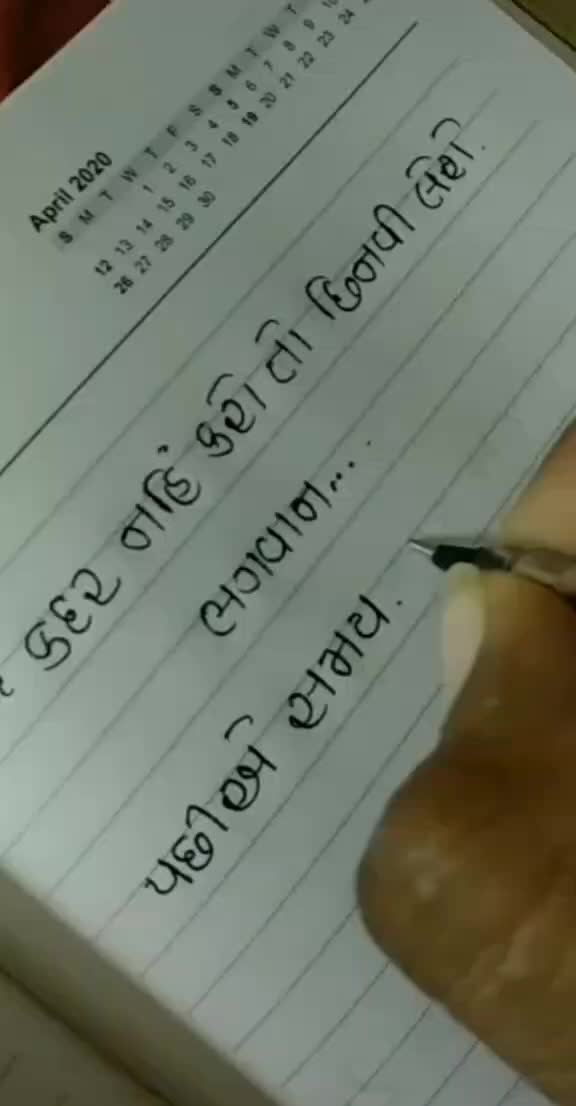 April 2020
S M T W T F S S M T W T
1 2 3 4 5 6 7 8 9
12 13 14 15 16 17 18 19 20 21 22 23 24
26 27 28 29 30
કદર નહિં કરો તો છિનવી લેશે.
ભગવાન....
પછી એ સમય.